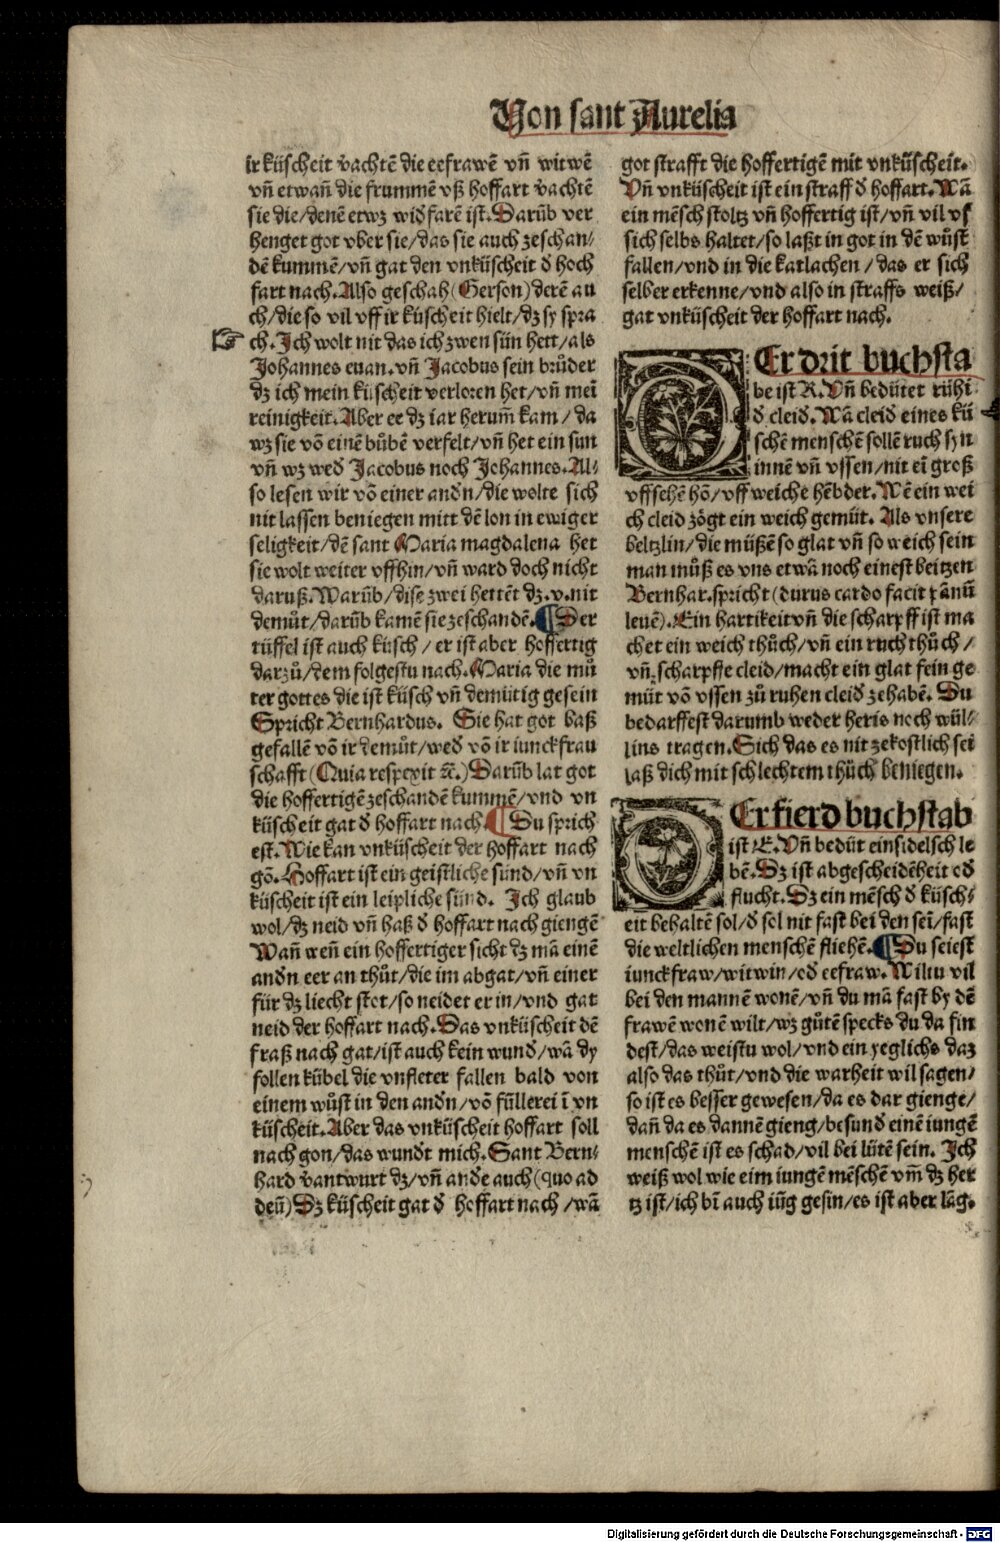 Von sant Aurelia
ir küscheit vachtẽ die eefrawẽ vñ witwẽ
vñ etwañ die frummẽ vß hoffart vachtẽ
sie die/denẽ etwz widfarẽ ist. Darũb ver
henget got vber sie/das sie auch zeschan/
dẽ kummẽ/vñ gat den vnküscheit d hoch
fart nach. Also geschah (Gerson) derẽ au
ch/die so vil vff ir küscheit hielt/dz sy spra
ch. Ich wolt nit das ich zwen sün hett/als
Johannes euan. vñ Jacobus sein brüder
dz ich mein küscheit verloren het/vñ meĩ
reinigkeit. Aber ee dz iar herum̃ kam/da
wz sie võ einẽ bůbẽ verfelt/vñ het ein sun
vñ wz wed Jacobus noch Johannes. Al/
so lesen wir võ einer andn/die wolte sich
nit lassen beniegen mitt dẽ lon in ewiger
seligkeit/dẽ sant Maria magdalena het
sie wolt weiter vffhin/vñ ward doch nicht
daruß. Warũb/dise zwei hettẽt dz .v. nit
demůt/darũb kamẽ sie zeschandẽ. Der
tüffel ist auch küsch/er ist aber hoffertig
darzů/dem folgestu nach. Maria die mů
ter gottes die ist küsch vñ demütig gesein
Spricht Bernhardus. Sie hat got baß
gefallẽ võ ir demůt/wed võ ir iunckfrau
schafft (Quia respexit ⁊c̃.) Darũb lat got
die hoffertigẽ zeschandẽ kummẽ/vnd vn
küscheit gat d hoffart nach. Du sprich
est. Wie kan vnküscheit der hoffart nach
gõ. Hoffart ist ein geistliche sünd/vñ vn
küscheit ist ein leipliche sünd. Ich glaub
wol/dz neid vñ haß d hoffart nach giengẽ
Wañ wẽn ein hoffertiger sicht dz mã einẽ
andn eer an thůt/die im abgat/vñ einer
für dz liecht stot/so neidet er in/vnd gat
neid der hoffart nach. Das vnküscheit dẽ
fraß nach gat/ist auch kein wund/wã dy
follen kübel die vnfleter fallen bald von
einem wůst in den andn/võ füllerei ĩ vn
küscheit. Aber das vnküscheit hoffart soll
nach gon/das wundt mich. Sant Bern/
hard vantwurt dz/vñ ande auch (quo ad
deũ) Dz küscheit gat d hoffart nach/wã
got strafft die hoffertigẽ mit vnküscheit.
Vñ vnküscheit ist ein straff d hoffart. Wã
ein mẽsch stoltz vñ hoffertig ist/vñ vil vf
sich selbs haltet/so laßt in got in dẽ wůst
fallen/vnd in die katlachen/das er sich
selber erkenne/vnd also in straffs weiß/
gat vnküscheit der hoffart nach.
DEr drit buchsta
be ist R. Vñ bedütet rühi
d cleid. Wã cleid eines kü
schẽ menschẽ sollẽ ruch syn
innẽ vñ vssen/nit eĩ groß
vffsehẽ hõ/vff weiche hẽbder. Wẽ ein wei
ch cleid zögt ein weich gemüt. Als vnsere
beltzlin/die müßẽ so glat vñ so weich sein
man můß es vns etwã noch einest beitzen
Bernhar. spricht (durus cardo facit pãnũ
leuẽ). Ein hartikeit vñ die scharpff ist ma
chet ein weich thůch/vñ ein ruch thůch/
vñ scharpffe cleid/macht ein glat fein ge
müt võ vssen zů ruhen cleid zehabẽ. Du
bedarffest darumb weder heris noch wül/
lins tragen. Sich das es nit zekostlich sei
laß dich mit schlechtem thůch beniegen.
DEr fierd buchstab
ist E. Vñ bedüt einsidelsch le
bẽ. Dz ist abgescheidẽheit od
flucht. Dz ein mẽsch d küsch/
eit behaltẽ sol/d sol nit fast bei den seĩ/fast
die weltlichen menschẽ fliehẽ. Du seiest
iunckfraw/witwin/od eefraw. Wiltu vil
bei den mannẽ wonẽ/vñ du mã fast by dẽ
frawẽ wonẽ wilt/wz gůtẽ specks du da fin
dest/das weistu wol/vnd ein yeglichs daz
also das thůt/vnd die warheit wil sagen/
so ist es besser gewesen/da es dar gienge/
dañ da es dannẽ gieng/besund einẽ iungẽ
menschẽ ist es schad/vil bei lütẽ sein. Ich
weiß wol wie eim iungẽ mẽschẽ vm̃ dz her
tz ist/ich bĩ auch iũg gesin/es ist aber lãg.
Digitalisierung gefördert durch die Deutsche Forschungsgemeinschaft - DFG